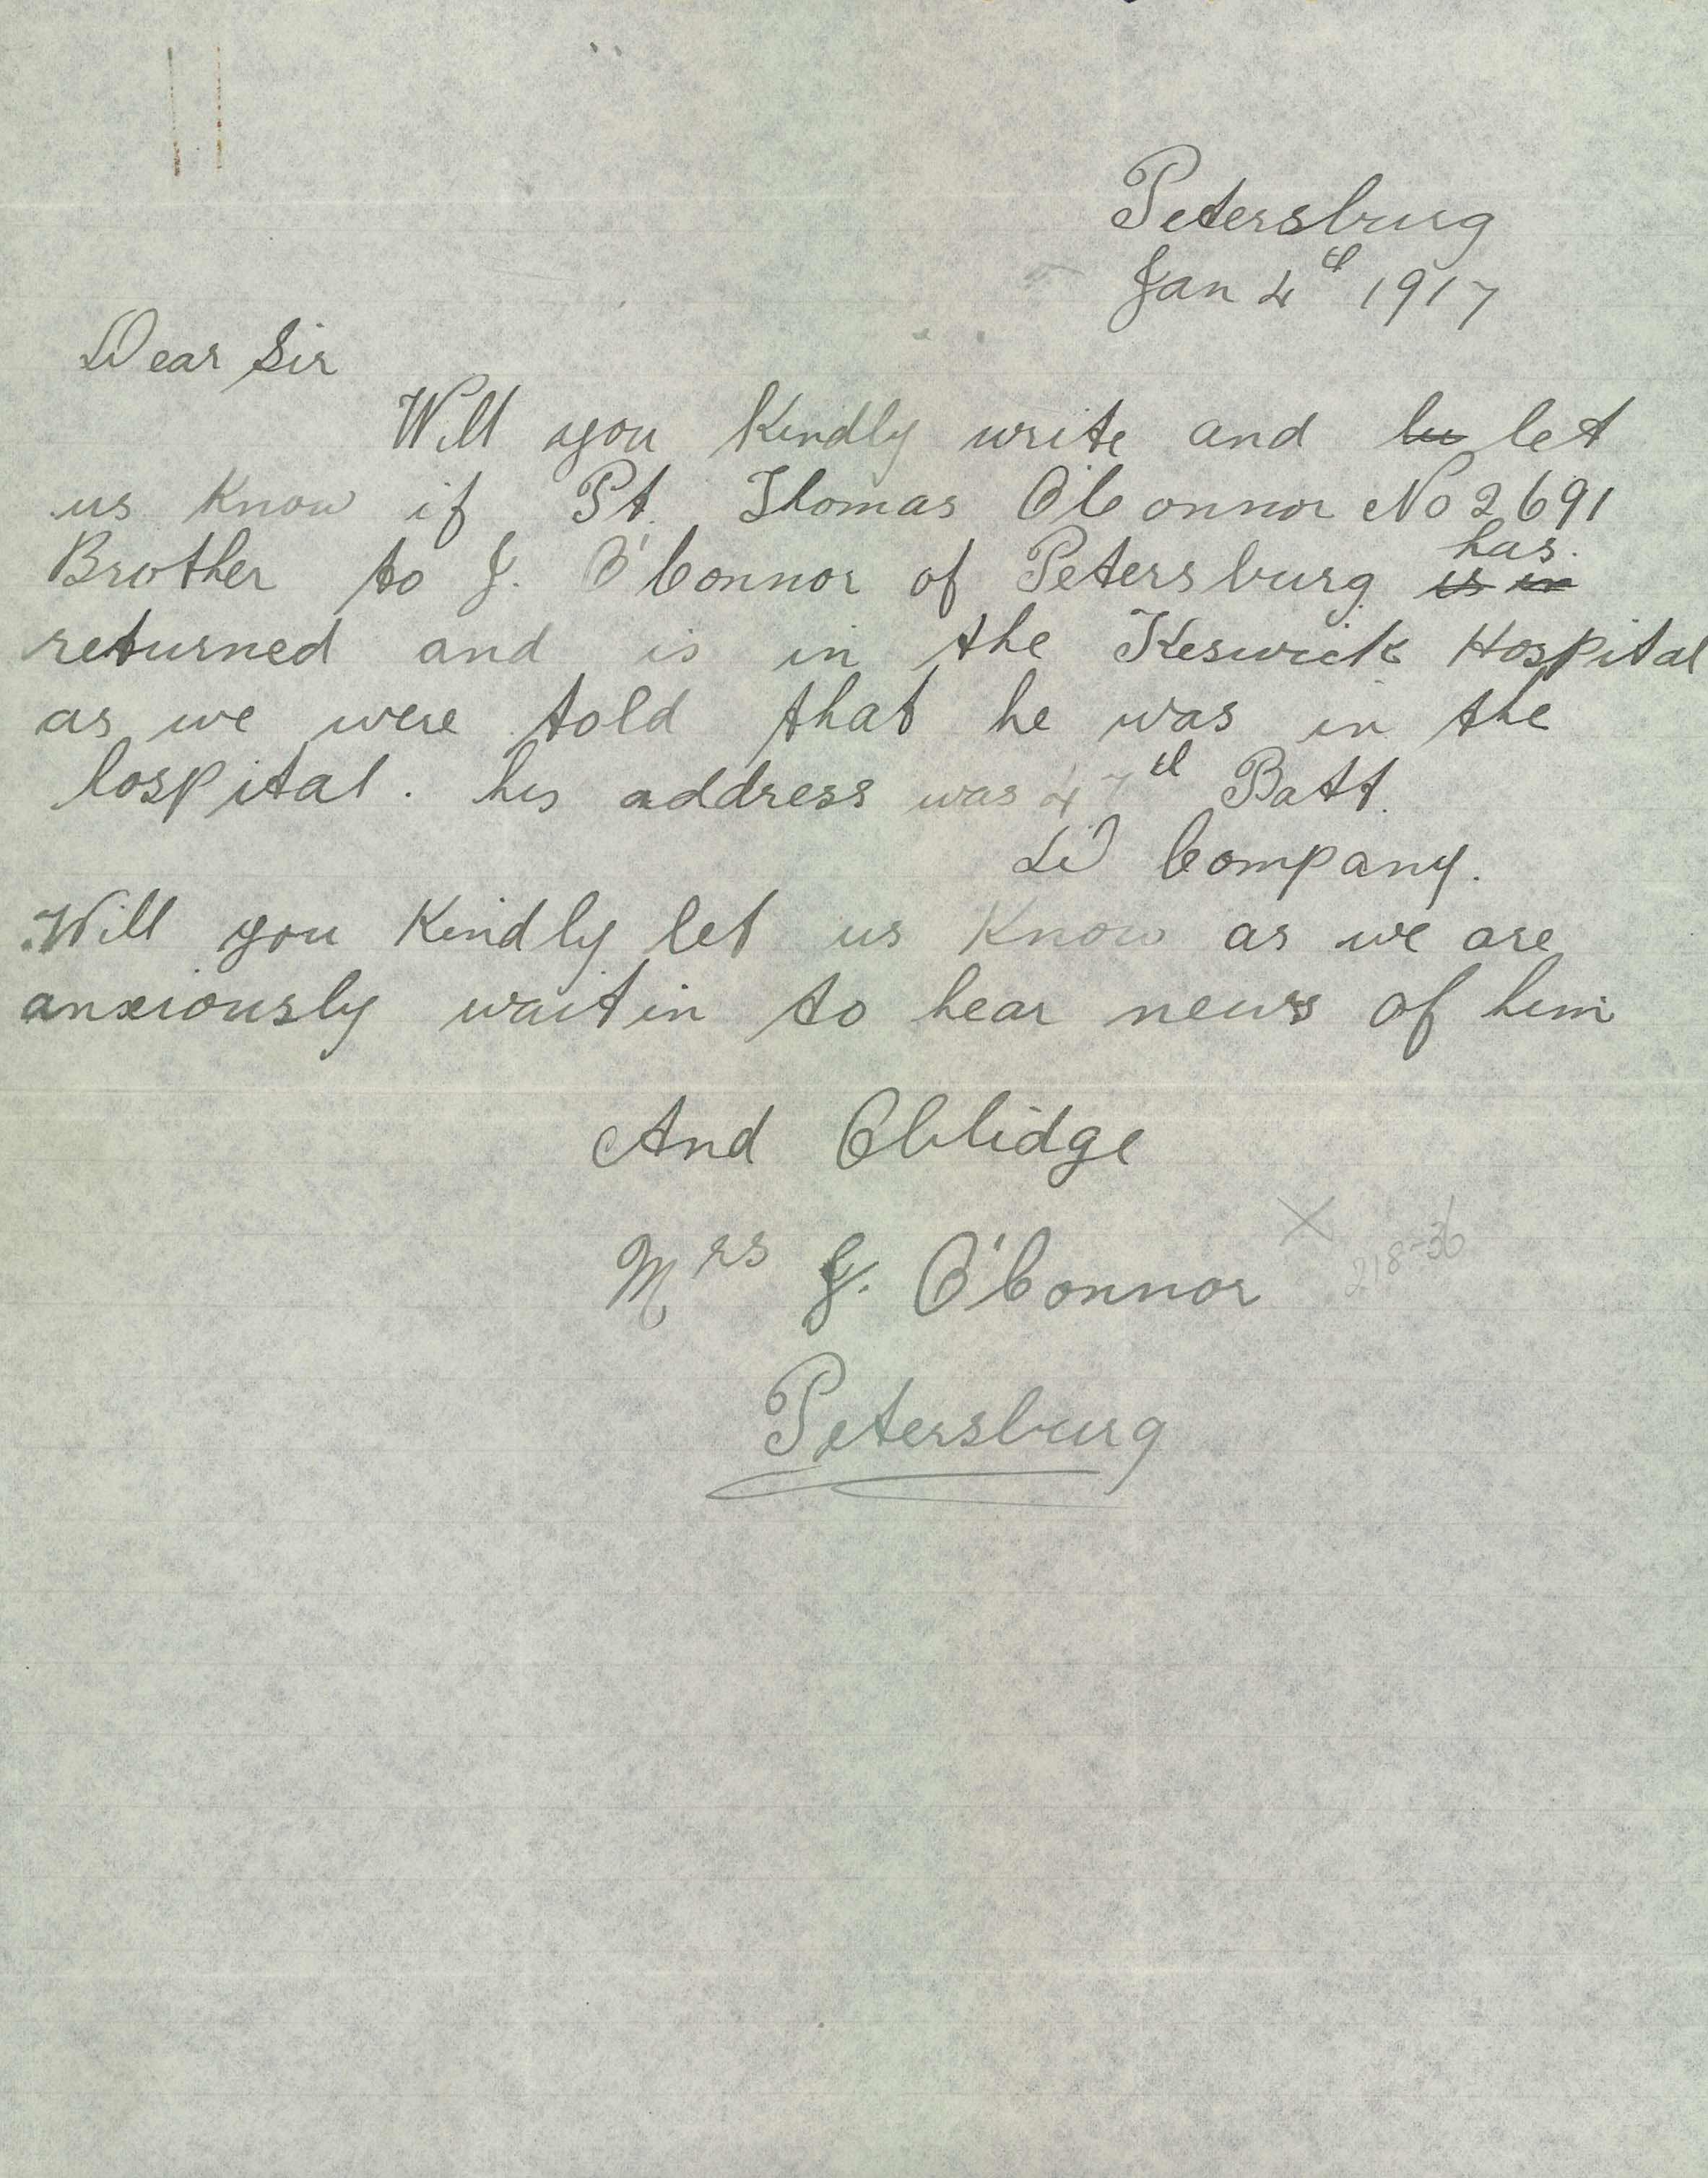 Petersburg
Jan 4th 1917
Dear Sir
Will you Kindly write and lu let
us Know if Pt. Thomas O'Connor No 2691
has.
Brother to J. O'Connor of Petersburg is in
returned and is in the Keswick Hospital
as we were told that he was in the
hospital. his address was 47th Batt.
D Company.
Will you Kindly let us Know as we are
anxiously waitin to hear news of him
And Obblidge
Mrs J. O'Connor
X 218-36
Petersburg